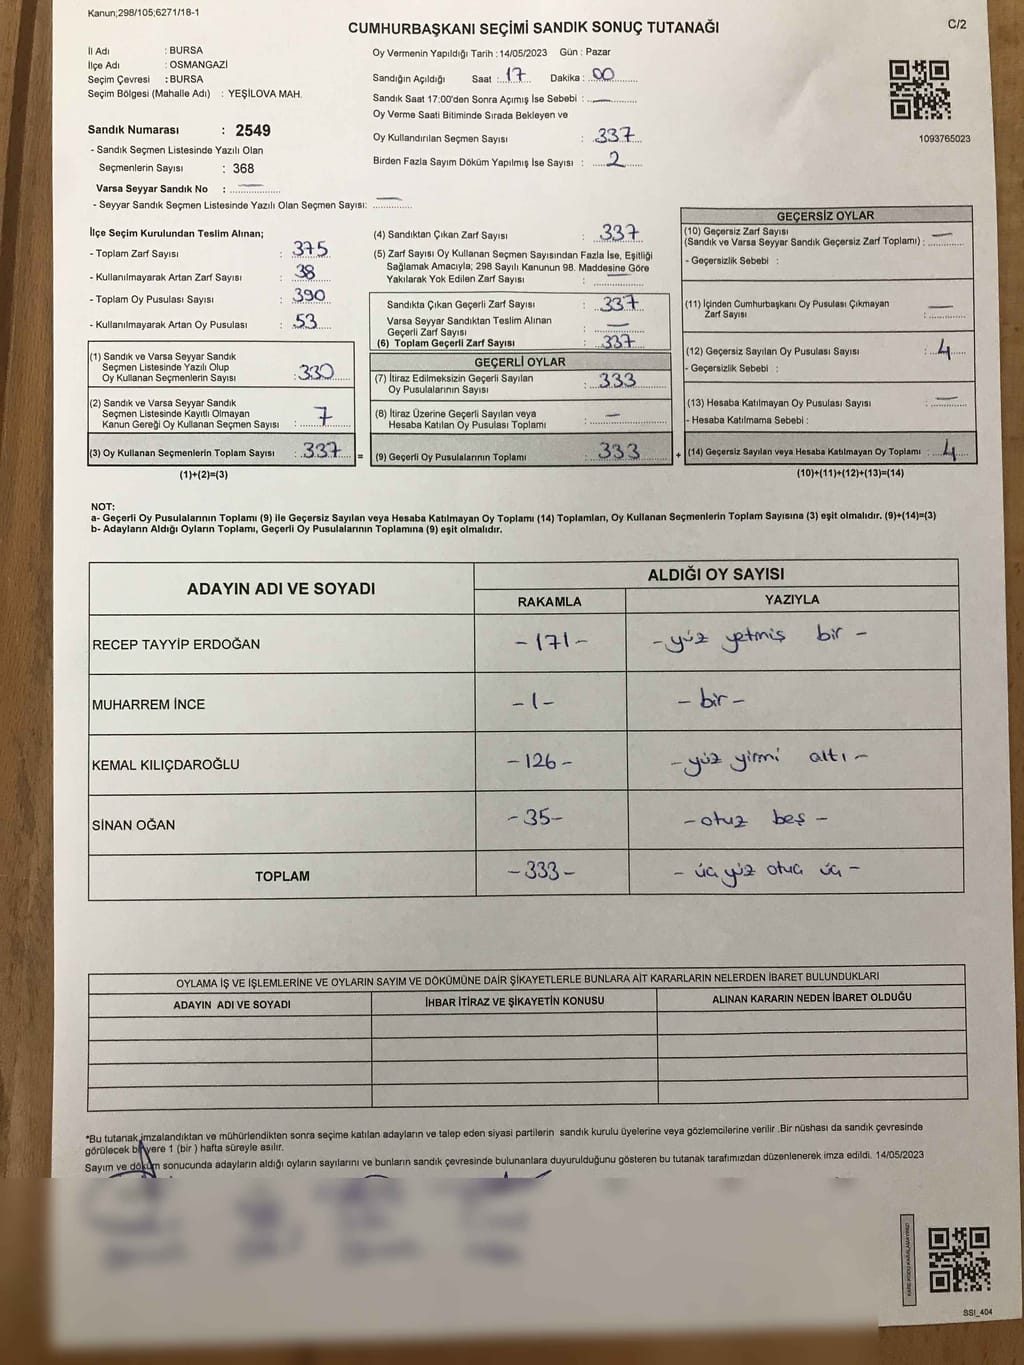 Kanun;298/105;6271/18-1
CUMHURBAŞKANI SEÇİMİ SANDIK SONUÇ TUTANAĞI
C/2
İl Adı : BURSA
İlçe Adı : OSMANGAZİ
Seçim Çevresi : BURSA
Seçim Bölgesi (Mahalle Adı) : YEŞİLOVA MAH.
Oy Vermenin Yapıldığı Tarih : 14/05/2023 Gün : Pazar
Sandığın Açıldığı Saat : 17 Dakika : 00
Sandık Saat 17:00'den Sonra Açımış İse Sebebi : —
Oy Verme Saati Bitiminde Sırada Bekleyen ve
Oy Kullandırılan Seçmen Sayısı : 337
Birden Fazla Sayım Döküm Yapılmış İse Sayısı : 2
1093765023
Sandık Numarası : 2549
- Sandık Seçmen Listesinde Yazılı Olan
Seçmenlerin Sayısı : 368
Varsa Seyyar Sandık No : —
- Seyyar Sandık Seçmen Listesinde Yazılı Olan Seçmen Sayısı: —
İlçe Seçim Kurulundan Teslim Alınan;
- Toplam Zarf Sayısı : 375
- Kullanılmayarak Artan Zarf Sayısı : 38
- Toplam Oy Pusulası Sayısı : 390
- Kullanılmayarak Artan Oy Pusulası : 53
(1) Sandık ve Varsa Seyyar Sandık
Seçmen Listesinde Yazılı Olup
Oy Kullanan Seçmenlerin Sayısı : 330
(2) Sandık ve Varsa Seyyar Sandık
Seçmen Listesinde Kayıtlı Olmayan
Kanun Gereği Oy Kullanan Seçmen Sayısı : 7
(3) Oy Kullanan Seçmenlerin Toplam Sayısı : 337 =
(1)+(2)=(3)
(4) Sandıktan Çıkan Zarf Sayısı : 337
(5) Zarf Sayısı Oy Kullanan Seçmen Sayısından Fazla İse, Eşitliği
Sağlamak Amacıyla; 298 Sayılı Kanunun 98. Maddesine Göre
Yakılarak Yok Edilen Zarf Sayısı : —
Sandıkta Çıkan Geçerli Zarf Sayısı : 337
Varsa Seyyar Sandıktan Teslim Alınan
Geçerli Zarf Sayısı : —
(6) Toplam Geçerli Zarf Sayısı : 337
GEÇERLİ OYLAR
(7) İtiraz Edilmeksizin Geçerli Sayılan
Oy Pusulalarının Sayısı : 333
(8) İtiraz Üzerine Geçerli Sayılan veya
Hesaba Katılan Oy Pusulası Toplamı : —
(9) Geçerli Oy Pusulalarının Toplamı : 333 +
GEÇERSİZ OYLAR
(10) Geçersiz Zarf Sayısı
(Sandık ve Varsa Seyyar Sandık Geçersiz Zarf Toplamı) : —
- Geçersizlik Sebebi :
(11) İçinden Cumhurbaşkanı Oy Pusulası Çıkmayan
Zarf Sayısı : —
(12) Geçersiz Sayılan Oy Pusulası Sayısı : 4
- Geçersizlik Sebebi :
(13) Hesaba Katılmayan Oy Pusulası Sayısı : —
- Hesaba Katılmama Sebebi :
(14) Geçersiz Sayılan veya Hesaba Katılmayan Oy Toplamı : 4
(10)+(11)+(12)+(13)=(14)
NOT:
a- Geçerli Oy Pusulalarının Toplamı (9) ile Geçersiz Sayılan veya Hesaba Katılmayan Oy Toplamı (14) Toplamları, Oy Kullanan Seçmenlerin Toplam Sayısına (3) eşit olmalıdır. (9)+(14)=(3)
b- Adayların Aldığı Oyların Toplamı, Geçerli Oy Pusulalarının Toplamına (9) eşit olmalıdır.
ADAYIN ADI VE SOYADI ALDIĞI OY SAYISI
RAKAMLA YAZIYLA
RECEP TAYYİP ERDOĞAN - 171 - - yüz yetmiş bir -
MUHARREM İNCE - 1 - - bir -
KEMAL KILIÇDAROĞLU - 126 - - yüz yirmi altı -
SİNAN OĞAN - 35 - - otuz beş -
TOPLAM - 333 - - üç yüz otuz üç -
OYLAMA İŞ VE İŞLEMLERİNE VE OYLARIN SAYIM VE DÖKÜMÜNE DAİR ŞİKAYETLERLE BUNLARA AİT KARARLARIN NELERDEN İBARET BULUNDUKLARI
ADAYIN ADI VE SOYADI İHBAR İTİRAZ VE ŞİKAYETİN KONUSU ALINAN KARARIN NEDEN İBARET OLDUĞU
*Bu tutanak imzalandıktan ve mühürlendikten sonra seçime katılan adayların ve talep eden siyasi partilerin sandık kurulu üyelerine veya gözlemcilerine verilir .Bir nüshası da sandık çevresinde
görülecek bir yere 1 (bir ) hafta süreyle asılır.
Sayım ve döküm sonucunda adayların aldığı oyların sayılarını ve bunların sandık çevresinde bulunanlara duyurulduğunu gösteren bu tutanak tarafımızdan düzenlenerek imza edildi. 14/05/2023
KARE KODU KARALAMAYINIZ!
SSI_404